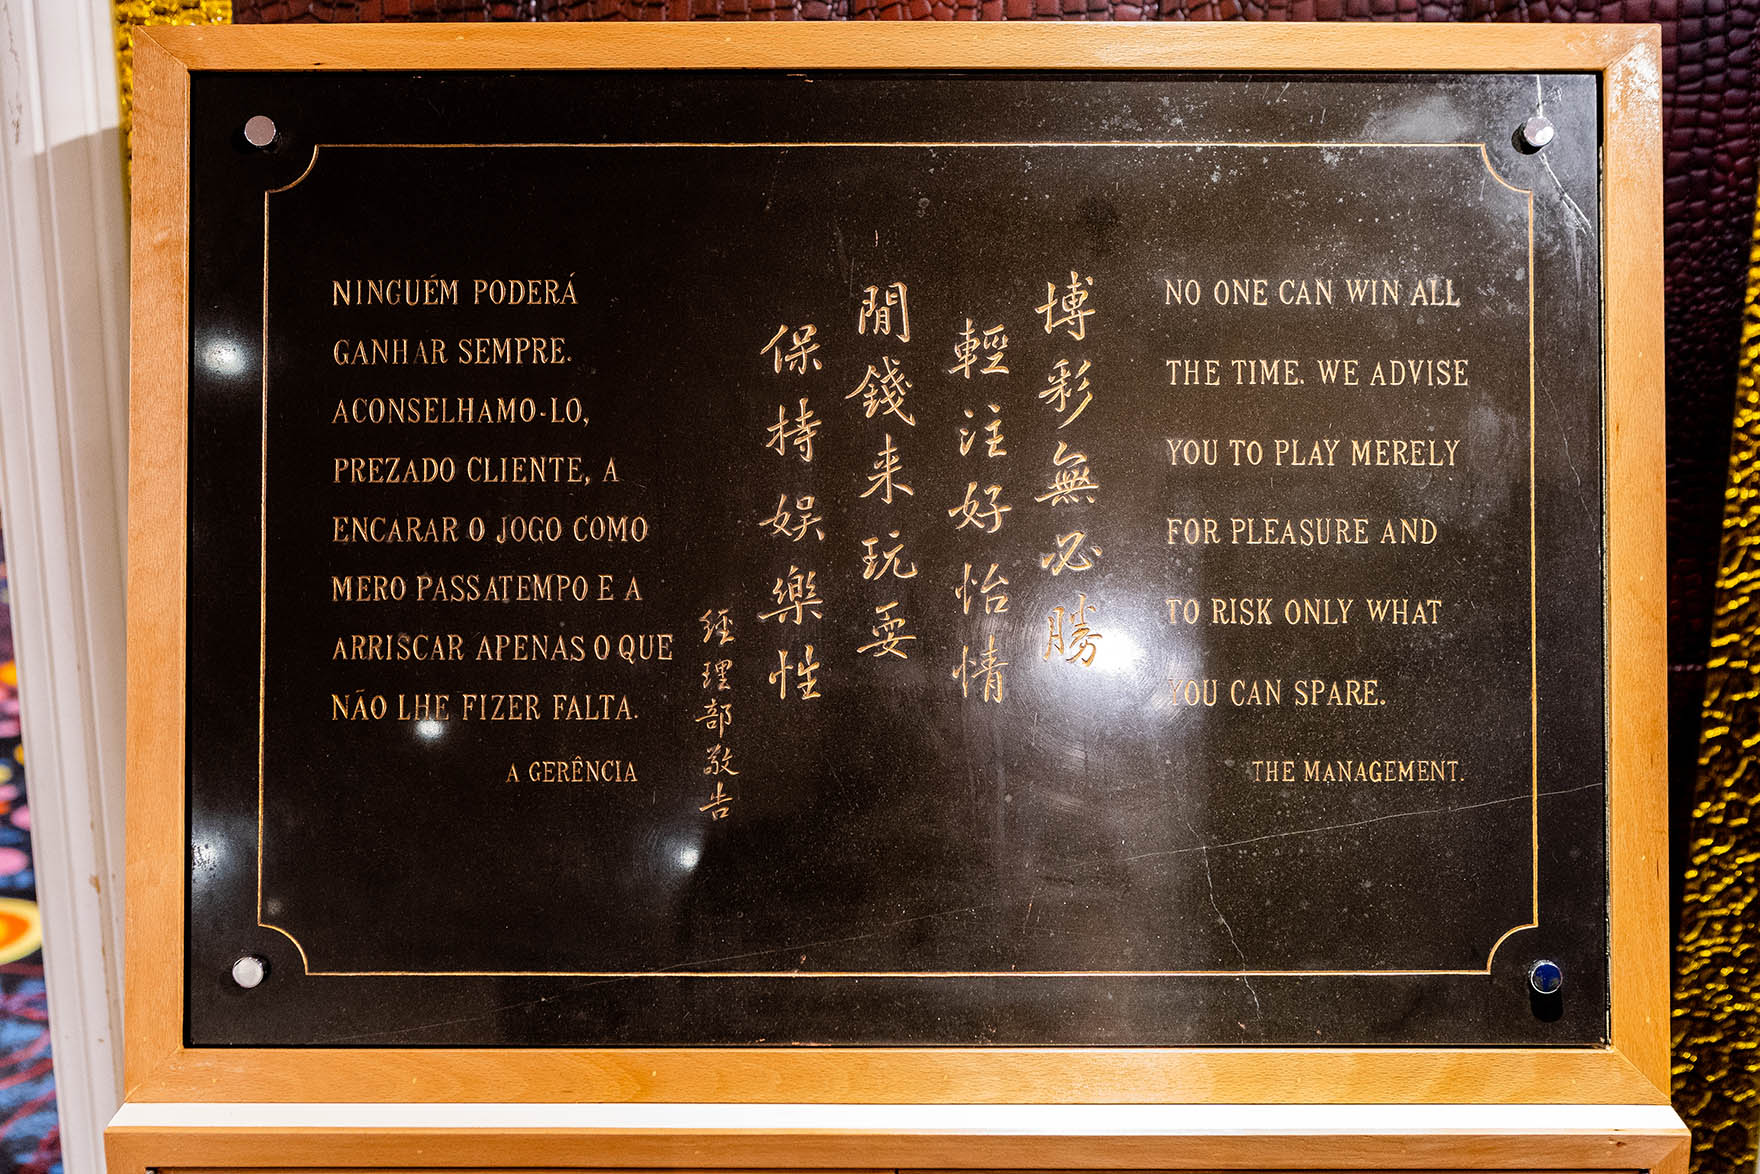 NINGUÉM PODERÁ
GANHAR SEMPRE.
ACONSELHAMO-LO,
PREZADO CLIENTE, A
ENCARAR O JOGO COMO
MERO PASSATEMPO E A
ARRISCAR APENAS O QUE
NÃO LHE FIZER FALTA.
A GERÊNCIA
博彩無必勝
輕注好怡情
閒錢来玩耍
保持娛樂性
經理部敬告
NO ONE CAN WIN ALL
THE TIME. WE ADVISE
YOU TO PLAY MERELY
FOR PLEASURE AND
TO RISK ONLY WHAT
YOU CAN SPARE.
THE MANAGEMENT.